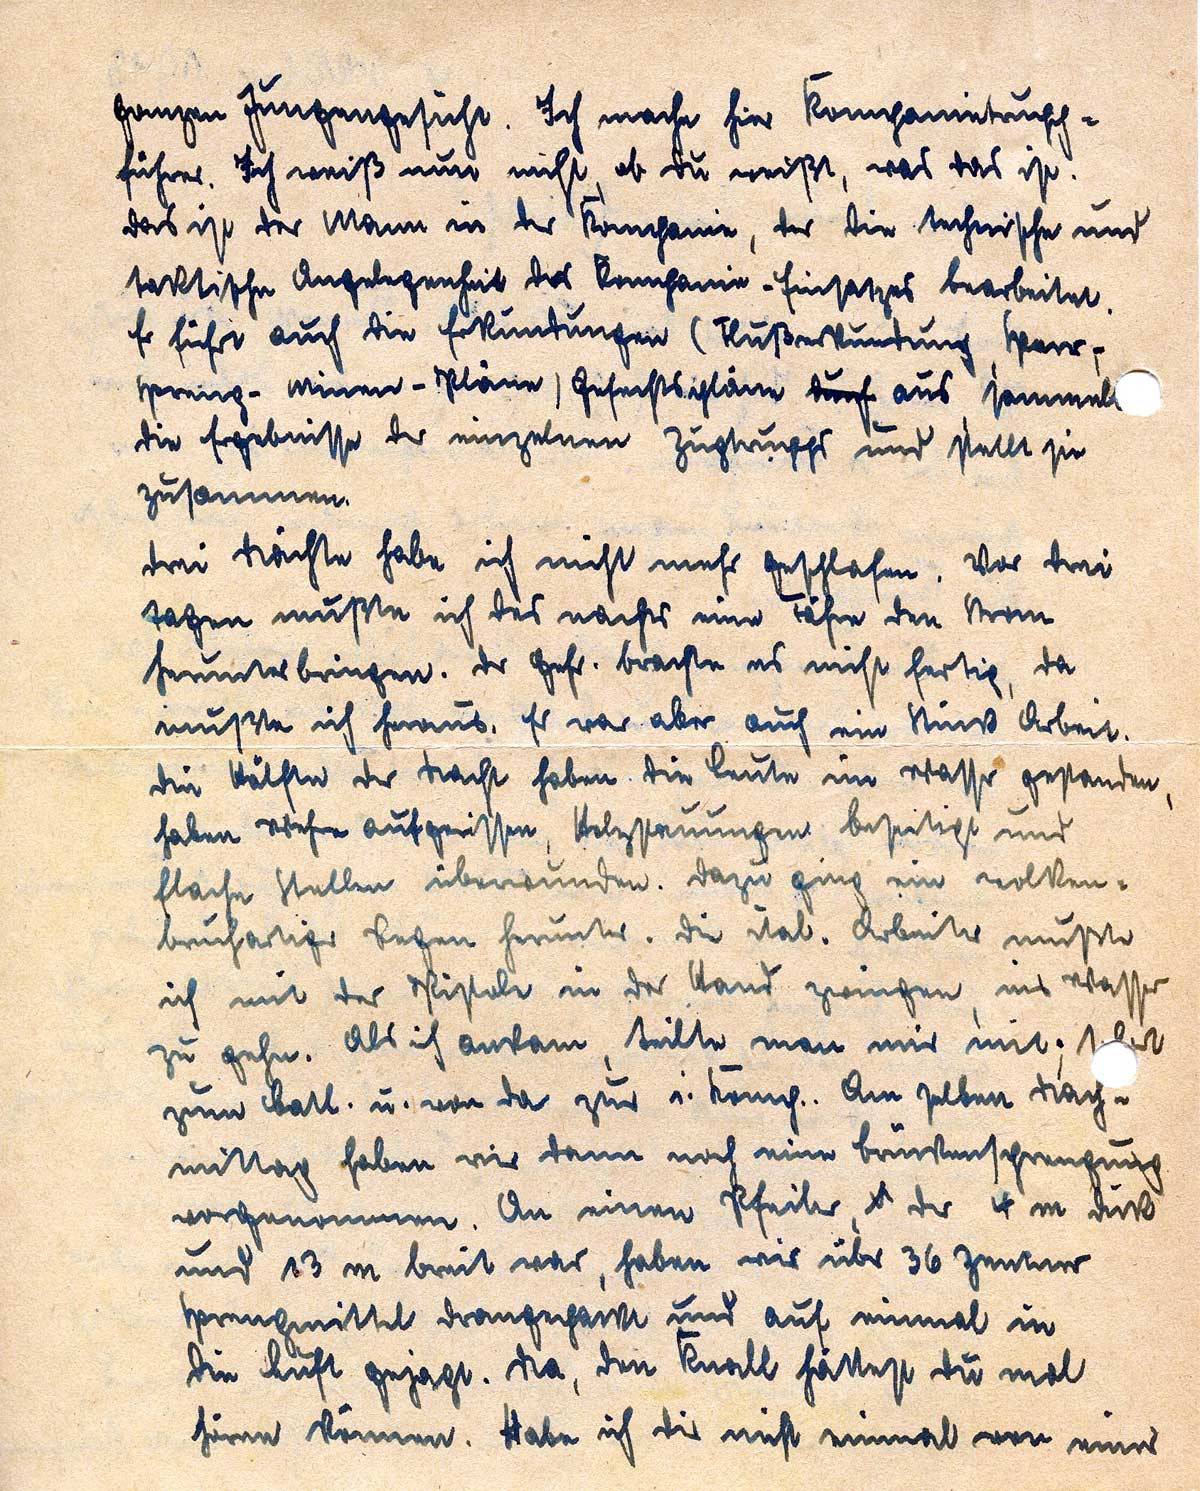 ganzen Jungengesicht. Ich mache hier Kompanietrupp-
führer. Ich weiß nun nicht, ob du weißt, was das ist.
das ist der Mann in der Kompanie, der die technische und
taktische Angelegenheit des Kompanie-Einsatzes bearbeitet.
Er führt auch die Erkundungen (Flußerkundung, Sperr-,
Spreng- Minen-Pläne) Gefechtspläne aus, sammelt
die Ergebnisse der einzelnen Zugtrupps und stellt sie
zusammen.
drei Nächte habe ich nicht mehr geschlafen. Vor drei
tagen mußte ich des nachts eine Fähre den Strom
herunterbringen. der Gefr. brachte es nicht fertig, da
mußte ich heraus. Er war aber auch ein Stück Arbeit.
die Hälfte der Nacht haben die Leute im Wasser gestanden,
haben Wehre aufgerissen, Holzstauungen beseitigt und
flache Stellen überwunden. dazu ging ein wolken-
bruchartiger Regen herunter. die ital. Arbeiter mußte
ich mit der Pistole in der Hand zwingen, ins Wasser
zu gehn. Als ich ankam, teilte man mir mit; sofort
zum Batl. u. von da zur 1. Komp.. Am selben Nach-
mittag haben wir dann noch eine Brückensprengung
vorgenommen. An einen Pfeiler, der 4 m dick
und 13 m breit war, haben wir über 36 Zentner
Sprengmittel drangepackt und auf einmal in
die Luft gejagt. Na, den Knall hättest du mal
hören können. Habe ich dir nicht einmal von einer